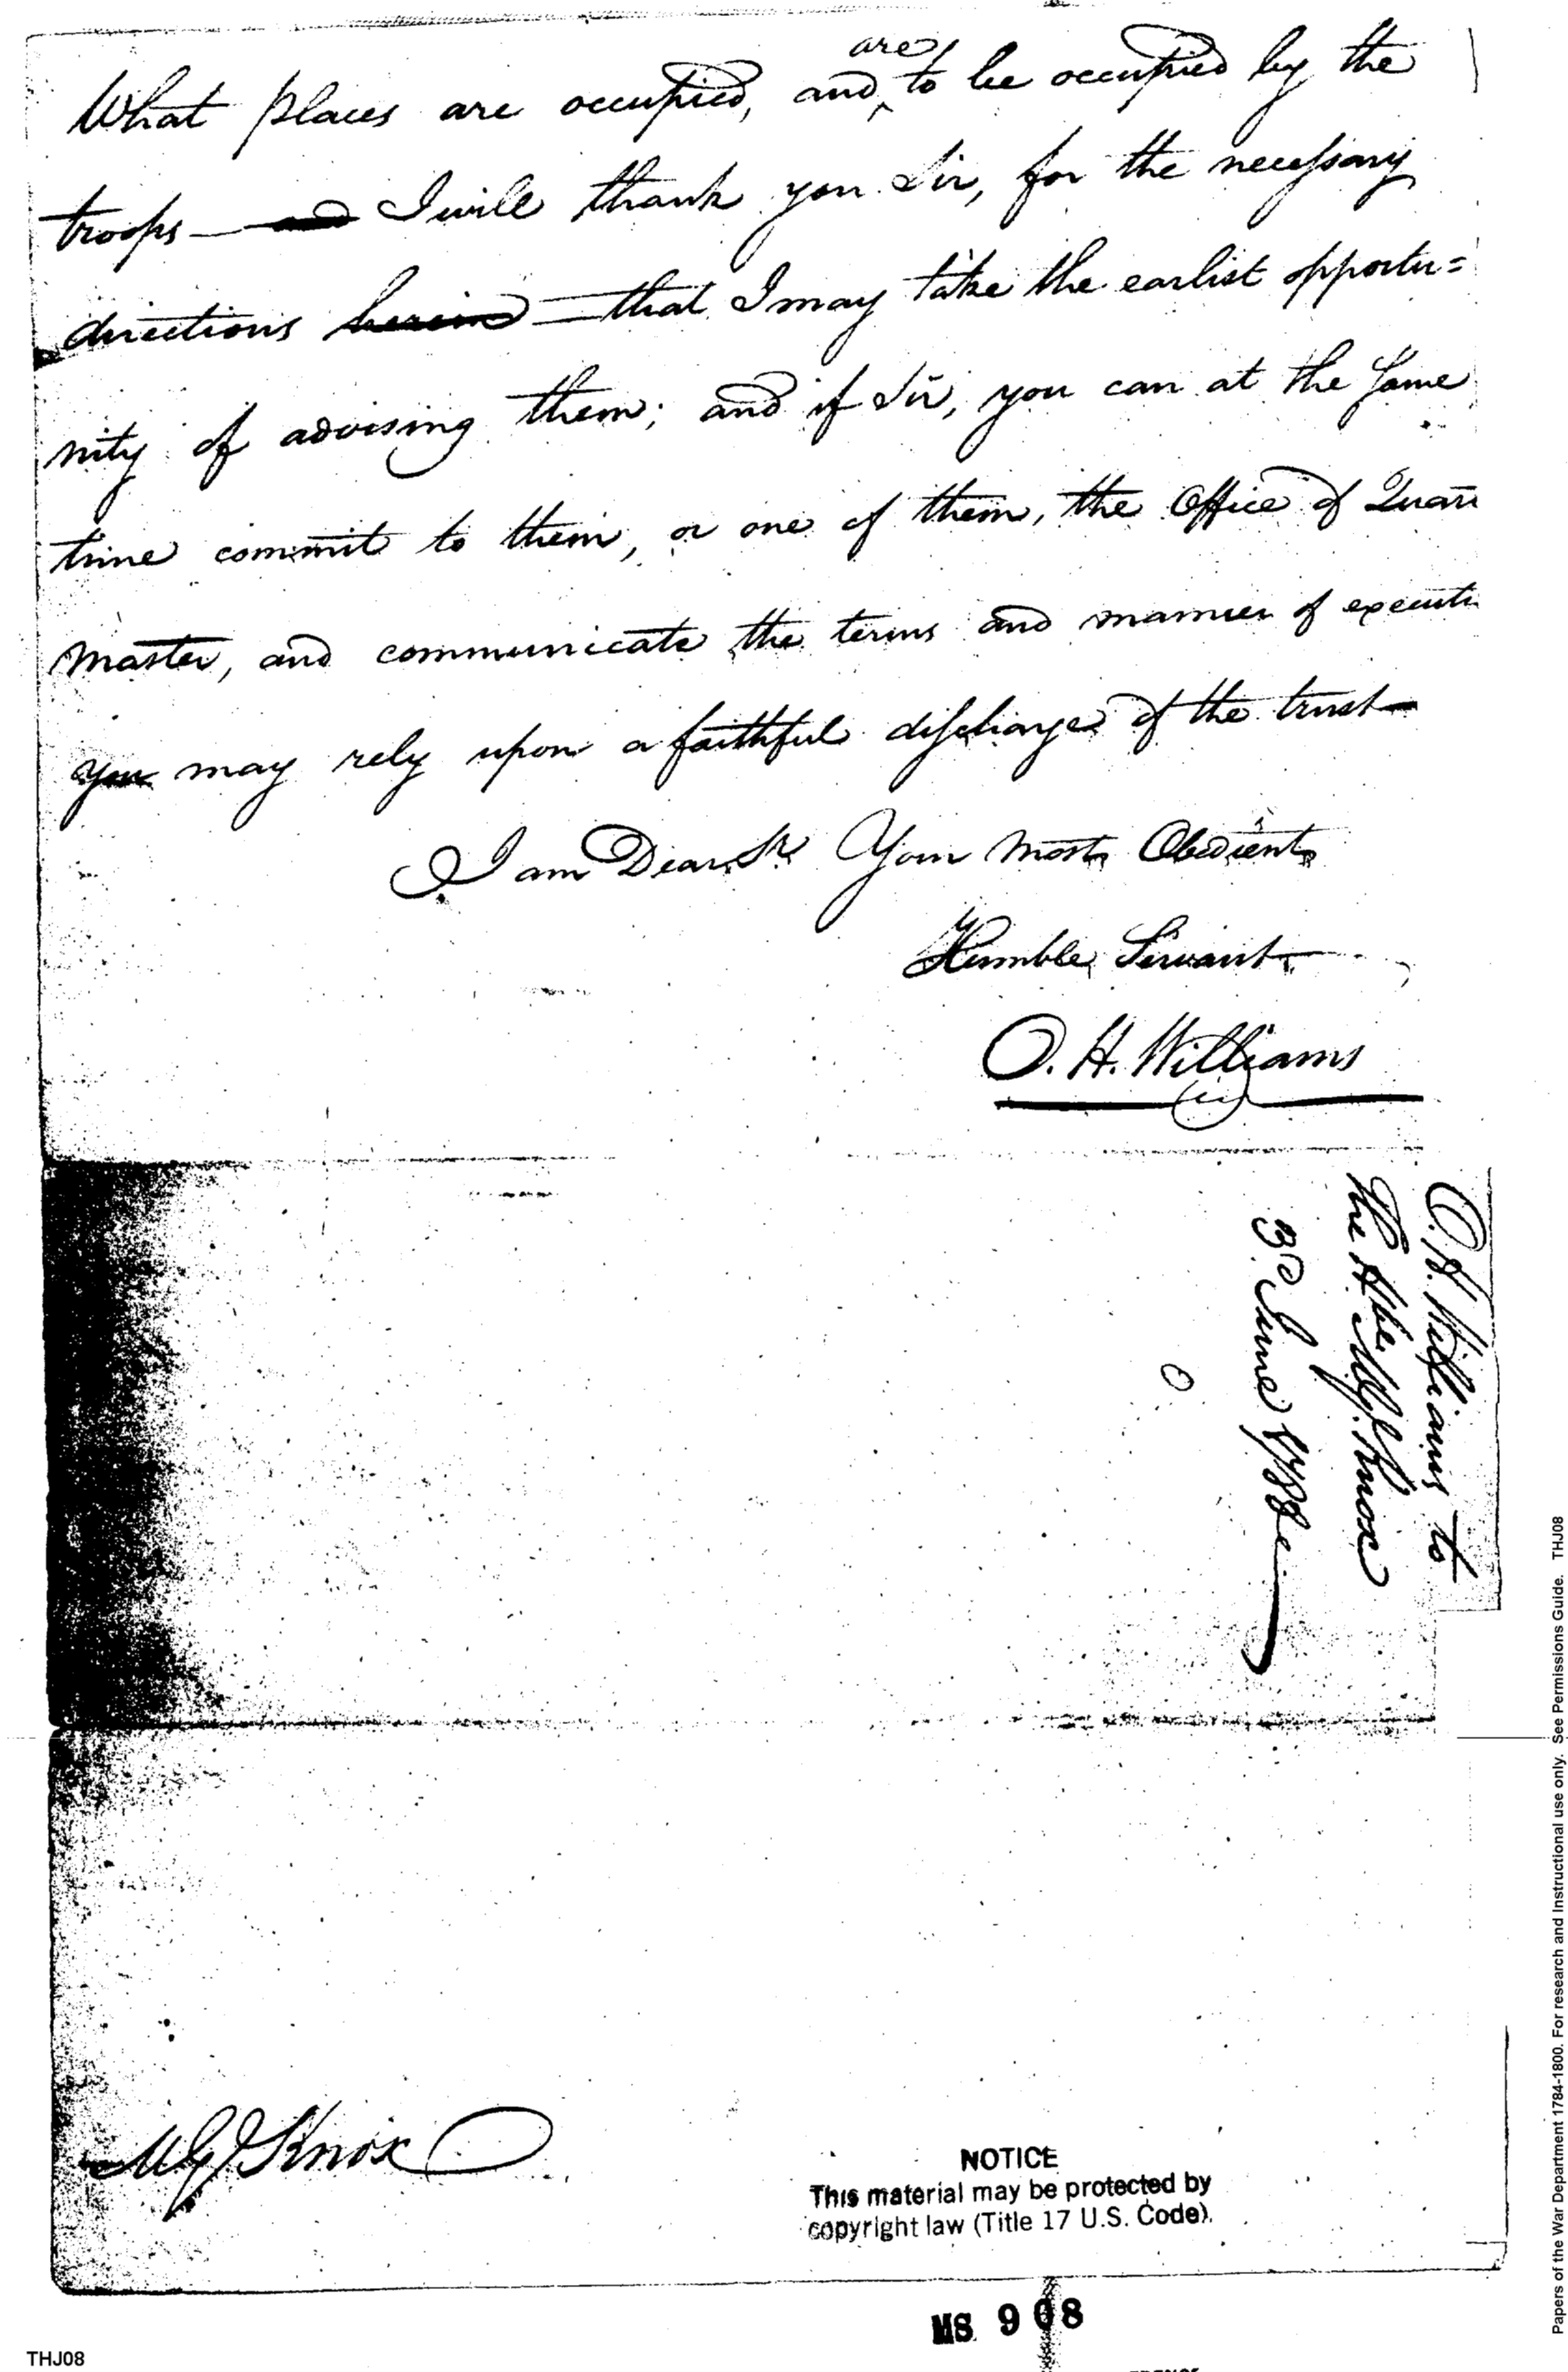 What places are occupied, and are to be occupied by the
troops — and I will thank you Sir, for the necessary
directions herein — that I may take the earlist opportu=
nity of advising them; and if Sir, you can at the same
time commit to them, or one of them, the Office of Quar
master, and communicate the terms and manner of executi
you may rely upon a faithful discharge of the trust—
I am Dear Sr. Your most Obedient
Humble Servant
O. H. Williams
O. H. Williams to
the Hble Mj. Knox
3d. June
MG Knox
NOTICE
This material may be protected by
copyright law (Title 17 U.S. Code).
MS 908
THJ08
Papers of the War Department 1784-1800. For research and Instructional use only. See Permissions Guide. THJ08